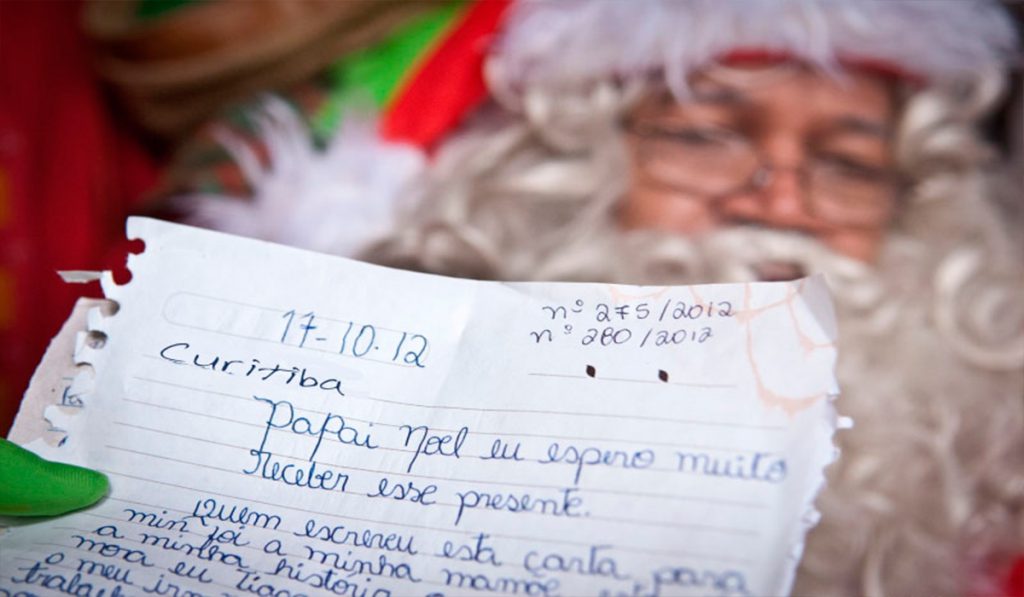 nº 275/2012
nº 280/2012
17-10.12
Curitiba
Papai Noel eu espero muito
receber esse presente.
Quem escreveu esta carta para
mim foi a minha mamãe
a minha história
mora eu
o meu